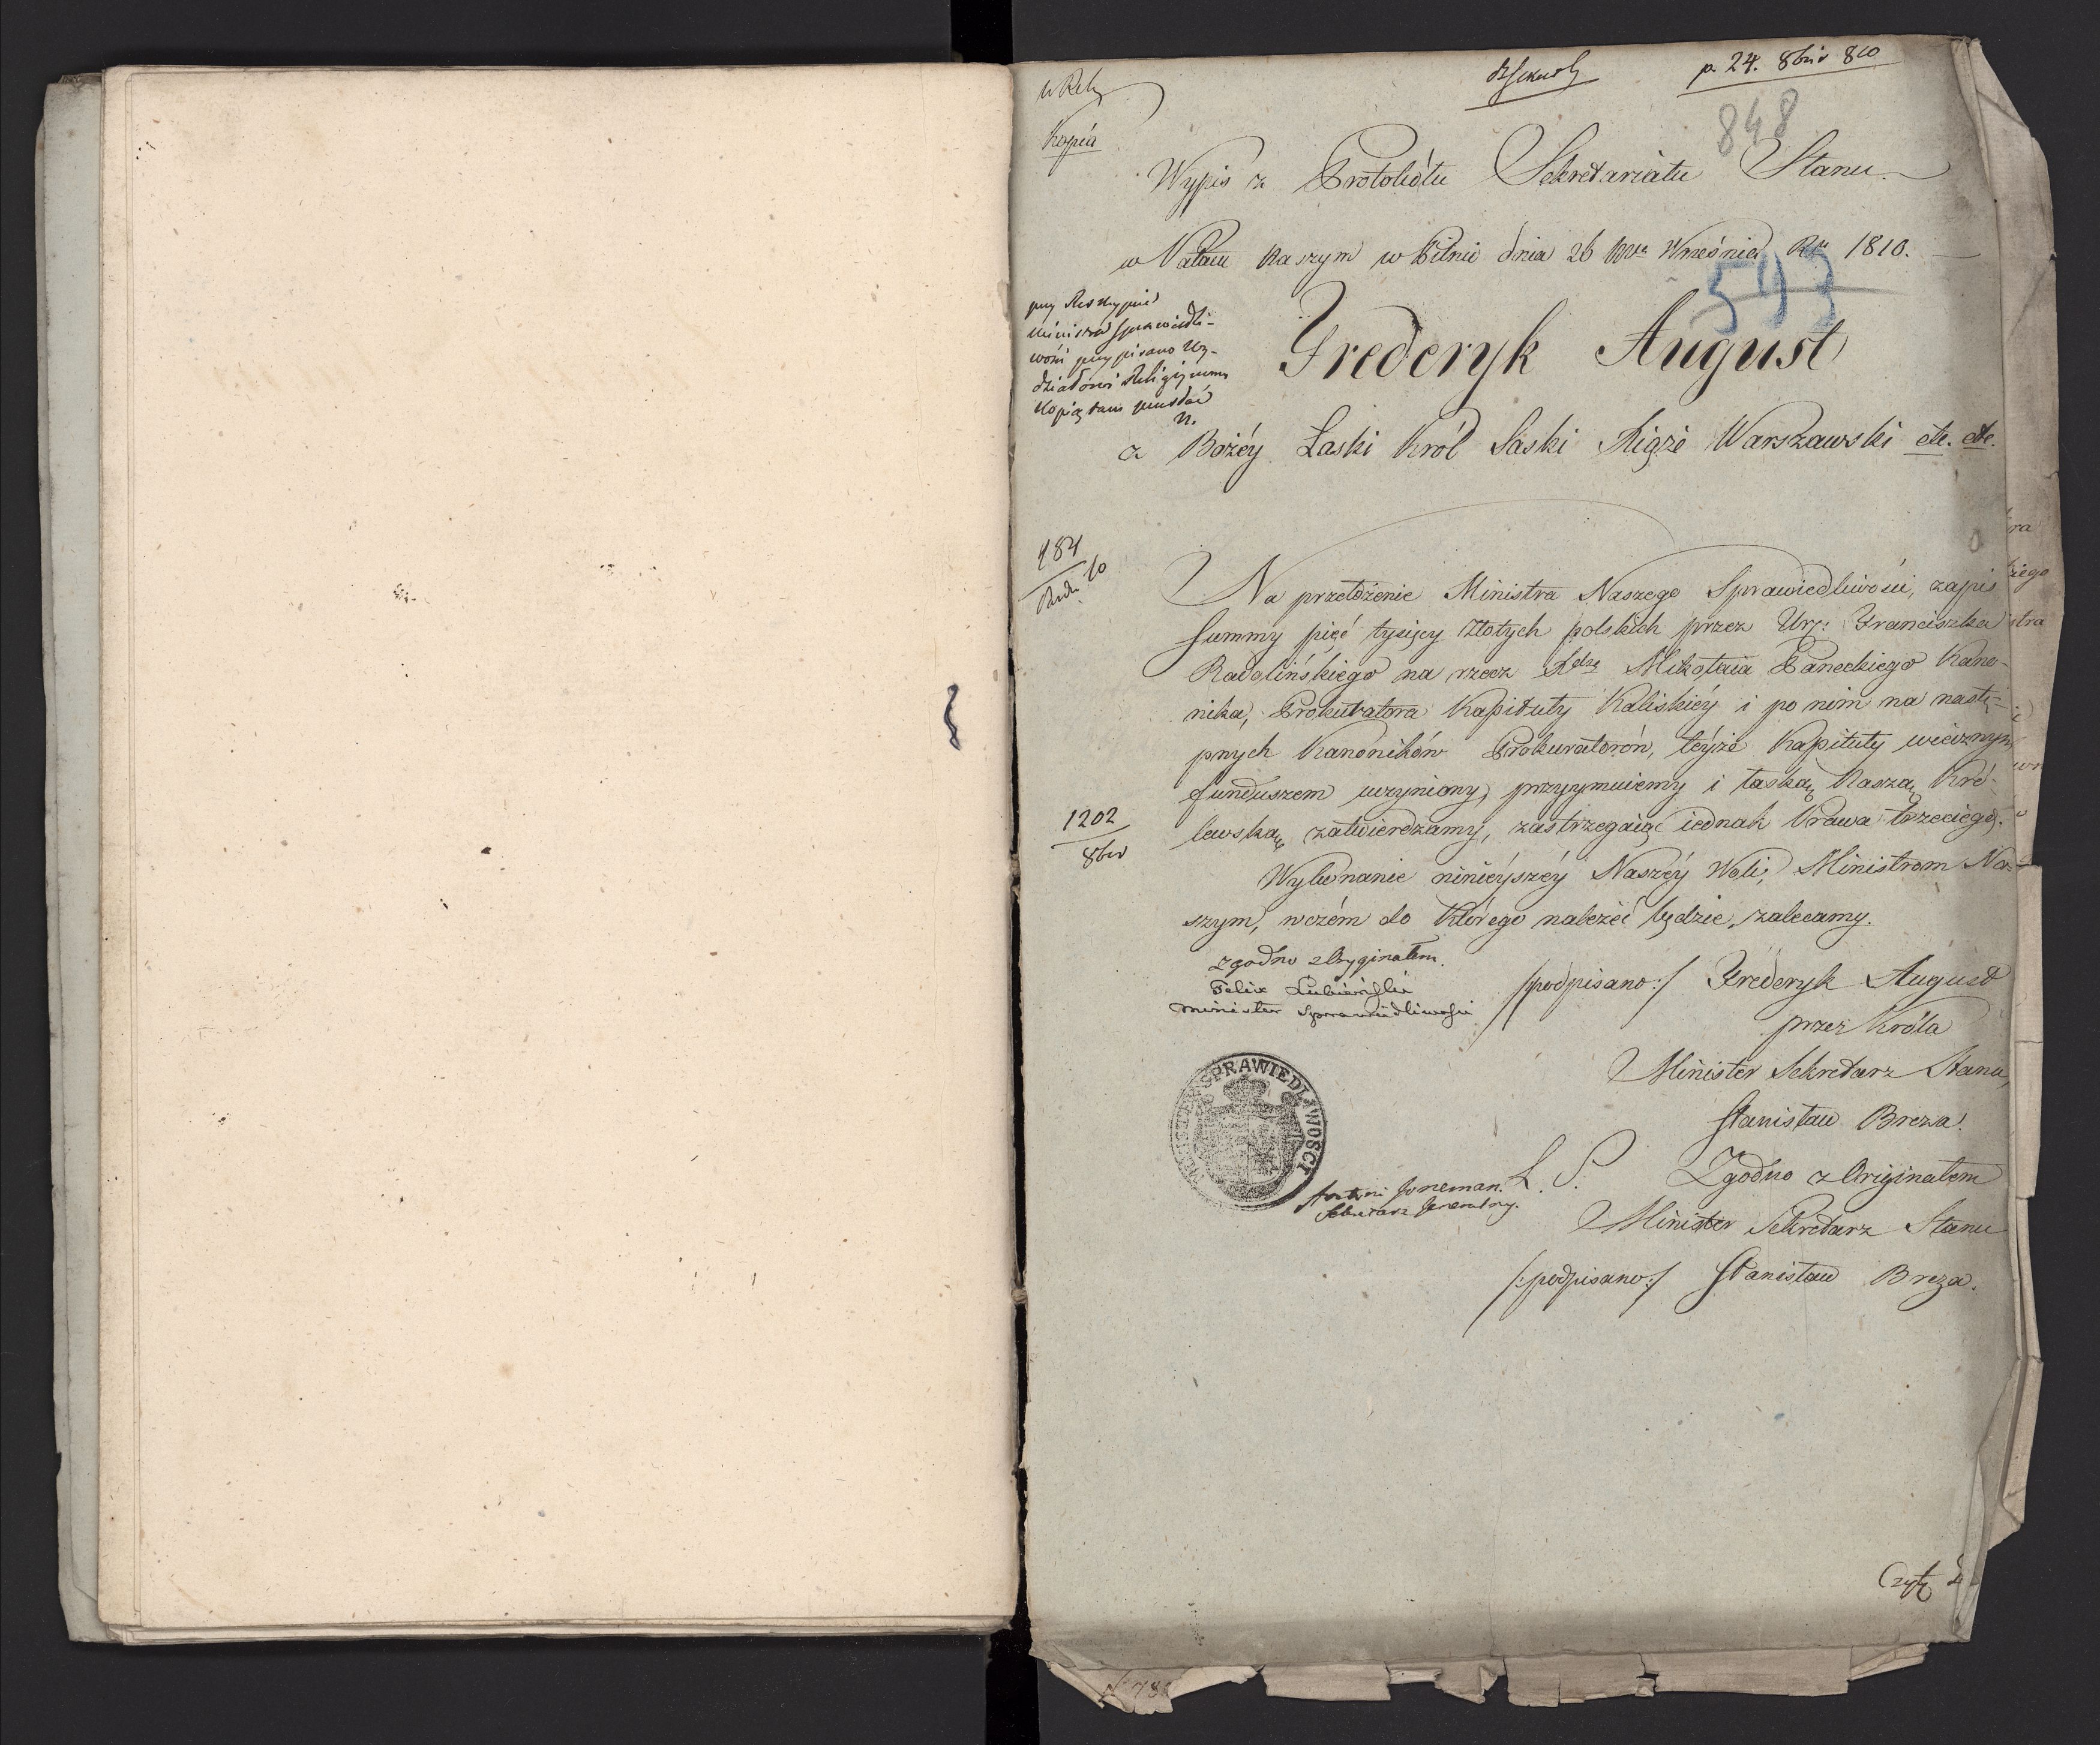 w Rel.
Kopia
p. 24. 8bris 810
848
Wypis z Protokółu Sekretariatu Stanu.
w Pałacu Naszym w Pilnic dnia 26 Mca Września Ru 1810.
593
przy Reskrypcie
Ministra Sprawiedli-
wości przypisano Wy-
działowi Religijnemu
Kopię tam przesłać
Frederyk August
z Bożéy Łaski Król Saski Xiąże Warszawski etc. etc.
184
10
Na przełożenie Ministra Naszego Sprawiedliwości, zapis
summy pięć tysięcy złotych polskich przez Ur: Franciszka
Radolińskiego na rzecz Xdza Mikołaia Paneckiego Kano-
nika, Prokuratora Kapituły Kaliskiéy i po nim na nastę-
pnych Kanoników Prokuratorów, téyże Kapituły wiecznym
funduszem uczyniony, przyymuiemy i łaską Naszą Kró-
lewską zatwierdzamy, zastrzegaiąc iednak Prawa trzeciego.
1202
8br
Wykonanie ninieyszéy Naszéy Woli, Ministrom Na-
szym, w czém do którego należeć będzie, zalecamy.
Zgodno z Oryginałem.
Felix Lubieński
Minister Sprawiedliwości
/podpisano:/ Frederyk August
przez Króla
Minister Sekretarz Stanu,
Stanisław Breza.
MINISTER SPRAWIEDLIWOSCI
L. S.
Zgodno z Originałem
Sekretarz Generalny.
Minister Sekretarz Stanu
/:podpisano:/ Stanisław Breza.